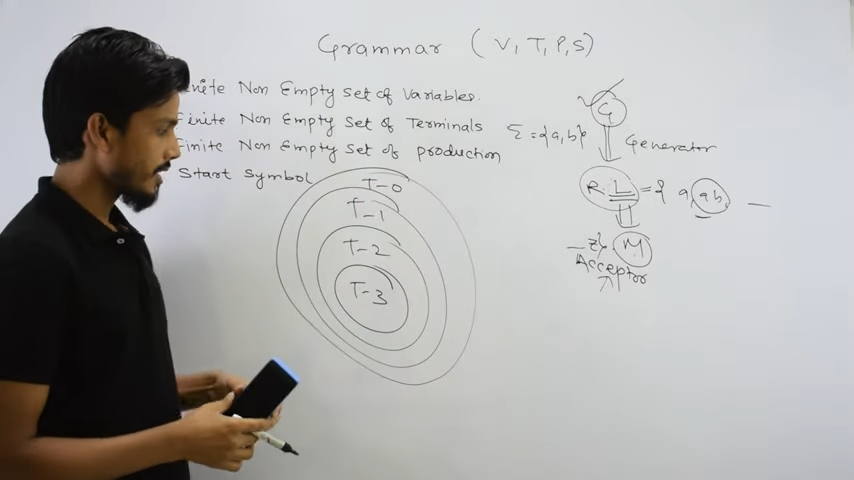 Grammar (V, T, P, S)
inite Non Empty Set of Variables.
Finite Non Empty Set of Terminals
Finite Non Empty Set of production
Start Symbol
T-0
T-1
T-2
T-3
Σ = {a, b}
G
Generator
R. L = { a, ab,
M
Acceptor